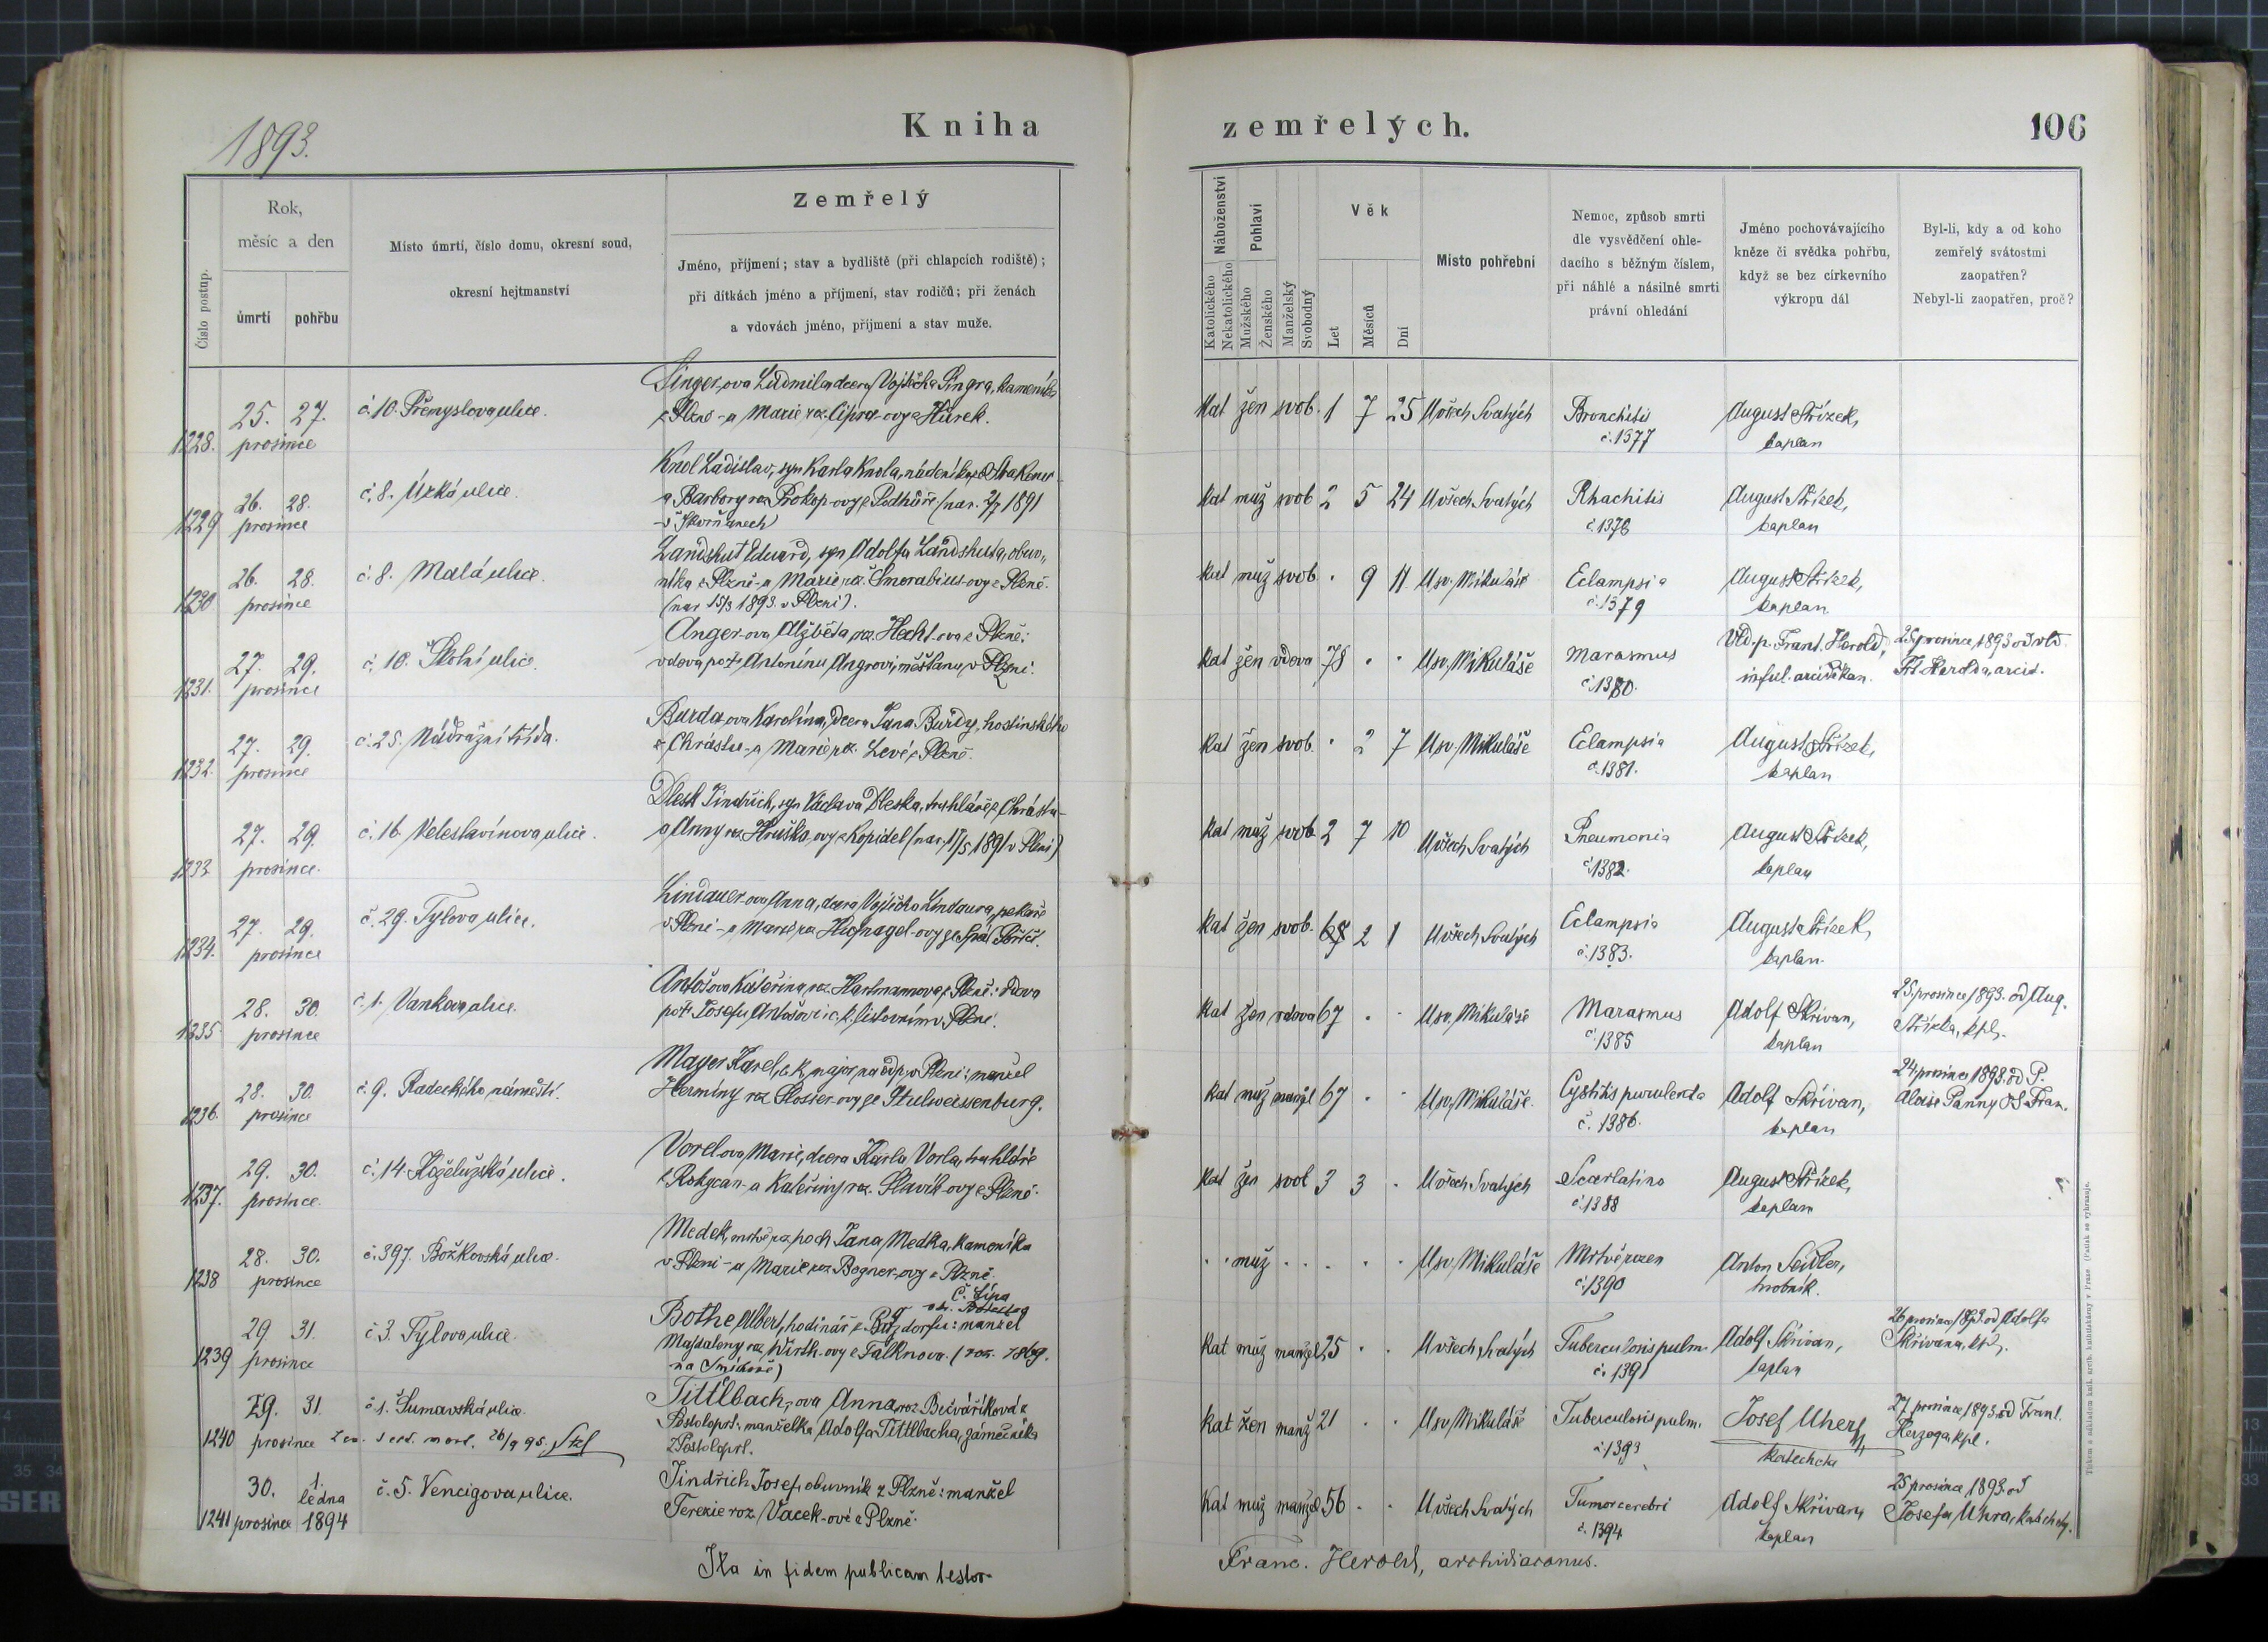 1893.
Kniha
zemřelých.
106
Číslo postup.
Rok,
měsíc a den
úmrtí
pohřbu
Místo úmrtí, číslo domu, okresní soud,
okresní hejtmanství
Zemřelý
Jméno, příjmení; stav a bydliště (při chlapcích rodiště);
při dítkách jméno a příjmení, stav rodičů; při ženách
a vdovách jméno, příjmení a stav muže.
Náboženství
Katolického
Nekatolického
Pohlaví
Mužského
Ženského
Manželský
Svobodný
Věk
Let
Měsíců
Dní
Místo pohřební
Nemoc, způsob smrti
dle vysvědčení ohle-
dacího s běžným číslem,
při náhlé a násilné smrti
právní ohledání
Jméno pochovávajícího
kněze či svědka pohřbu,
když se bez církevního
výkropu dál
Byl-li, kdy a od koho
zemřelý svátostmi
zaopatřen?
Nebyl-li zaopatřen, proč?
1228. 25. 27. prosince
č. 10. Přemyslova ulice.
Singer-ova Ludmila, dcera Vojtěcha Singra, kameníka
z Plzně - a Marie roz. Cipra-ovy z Hůrek.
Kat žen svob. 1 7 25 U všech Svatých
Bronchitis
č. 1377
August Střízek,
kaplan
1229 26. 28. prosince
č. 8. Úzká ulice.
Knol Ladislav, syn Karla Knola, nádeníka
a Barbory roz. Prokop-ovy z Podhůře (nar. 2/7 1891
v Skvrňanech)
Kat muž svob 2 5 24 U všech Svatých
Rhachitis
č. 1378
August Střízek,
kaplan
1230 26. 28. prosince
č. 8. Malá ulice.
Landshut Eduard, syn Adolfa Landshuta, obuv„
níka z Plzně - a Marie roz. Smorabius-ovy z Plzně.
(nar 15/3 1893. v Plzni).
Kat muž svob. . 9 11. U sv. Mikuláše
Eclampsia
č. 1379
August Střízek,
kaplan
1231. 27. 29. prosince
č. 10. Školní ulice.
Anger-ova Alžběta roz. Hecht-ova z Plzně:
vdova po † Antonínu Angrovi, měšťanu v Plzni.
Kat žen vdova 78 . . U sv. Mikuláše
Marasmus
č. 1380.
Vld. p. Frant. Herold,
inful. arciděkan.
25. prosince 1893 od vld.
Fr. Herolda, arcid.
1232. 27. 29. prosince
č. 25. Nádražní třída.
Burda-ova Karolína, dcera Jana Burdy, hostinského
z Chrástu - a Marie roz. Levé z Plzně.
Kat žen svob. . 2 7 U sv. Mikuláše
Eclampsia
č. 1381.
August Střízek,
kaplan
1233 27. 29. prosince.
č. 16. Veleslavínova ulice.
Dlesk Jindřich, syn Václava Dleska, truhláře z Chrástu -
a Anny roz. Hruška-ovy z Kopidel (nar. 17/5 1891 v Plzni)
Kat muž svob. 2 7 10 U všech Svatých
Pneumonia
č. 1382.
August Střízek,
kaplan
1234. 27. 29. prosince
č. 29. Tylova ulice.
Lindauer-ova Anna, dcera Vojtěcha Lindaura, pekaře
v Plzni - a Marie roz. Hufnagel-ovy ze Spál. Poříčí.
Kat žen svob. 2 1 U všech Svatých
Eclampsia
č. 1383.
August Střízek,
kaplan.
1235 28. 30. prosince
č. 1. Vankova ulice.
Antošova Kateřina, roz. Hartmannova z Plzně: vdova
po † Josefu Antošovi c. k. listovním v Plzni.
Kat žen vdova 67 . . U sv. Mikuláše
Marasmus
č. 1385
Adolf Skřivan,
kaplan
25. prosince 1893. od Aug.
Střízka, kpl.
1236. 28. 30. prosince
č. 9. Radeckého náměstí.
Mayer Karel, c. k. major na odp. v Plzni: manžel
Hermíny roz. Slosser-ovy ze Stulweissenburg.
Kat muž manžel 67 . . U sv. Mikuláše.
Cystitis purulenta
č. 1386.
Adolf Skřivan,
kaplan
24. prosince 1893. od P.
Aloise Panny Fran.
1237. 29. 30. prosince.
č. 14. Koželužská ulice.
Vorel-ova Marie, dcera Karla Vorla, truhláře
z Rokycan - a Kateřiny roz. Slavík-ovy z Plzně.
Kat žen svob 3 3 . U všech Svatých
Scarlatina
č. 1388
August Střízek,
kaplan
1238 28. 30. prosince
č. 397. Božkovská ulice.
Medek, mrtvě roz. hoch Jana Medka, kameníka
v Plzni - a Marie roz. Bogner-ovy z Plzně.
. . muž . . . . . U sv. Mikuláše
Mrtvě rozen
č. 1390
Anton Seidler,
hrobník.
1239 29 31. prosince
č. 3. Tylova ulice.
Č. Lípa
Bothe Albert, hodinář z : manžel
Majdaleny roz. Wirth-ovy z Falknova. (roz. 1869.
na Smíchově)
Kat muž manžel 25 . . U všech Svatých
Tuberculosis pulm.
č. 1391
Adolf Skřivan,
kaplan
26 prosince 1893. od Adolfa
Skřivana, kpl.
1240 29. 31. prosince
č. 1. Šumavská ulice.
26/9 95.
Tittlbach-ova Anna, roz. Bečváříková z
Postoloprt: manželka Adolfa Tittlbacha, zámečníka
z Postoloprt.
Kat žen manž 21 . . U sv. Mikuláše
Tuberculosis pulm.
č. 1393
Josef Uher
katecheta
27 prosince 1893 od Frant.
Herzoga, kpl.
1241 30. prosince 1. ledna 1894
č. 5. Vencigova ulice.
Jindřich Josef, obuvník z Plzně: manžel
Terezie roz. Vacek-ové z Plzně.
Kat muž manžel 56 . . U všech Svatých
Tumor cerebri
č. 1394
Adolf Skřivan,
kaplan
25 prosince 1893. od
Josefa Uhra, katechety.
Ita in fidem publicam testor
Franc. Herold, archidiaconus.